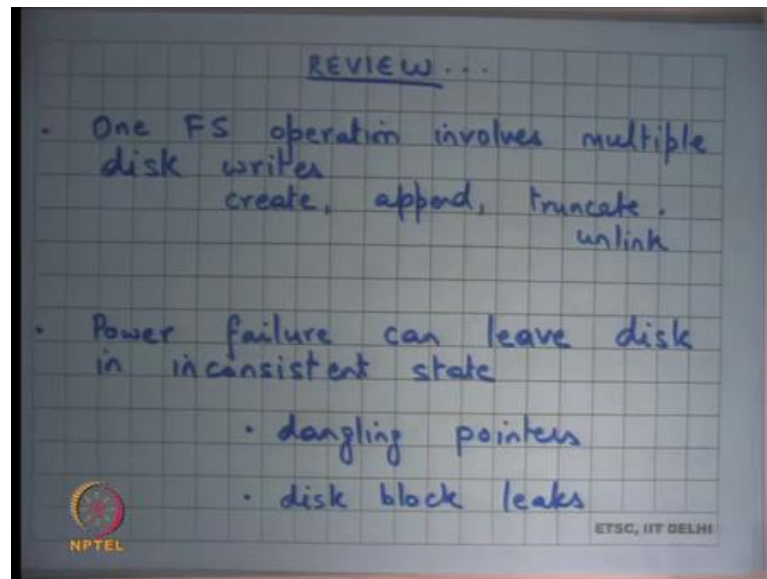 REVIEW...
. One FS operation involves multiple
disk writes
create, append, truncate.
unlink
. Power failure can leave disk
in inconsistent state
. dangling pointers
. disk block leaks
NPTEL
ETSC, IIT DELHI